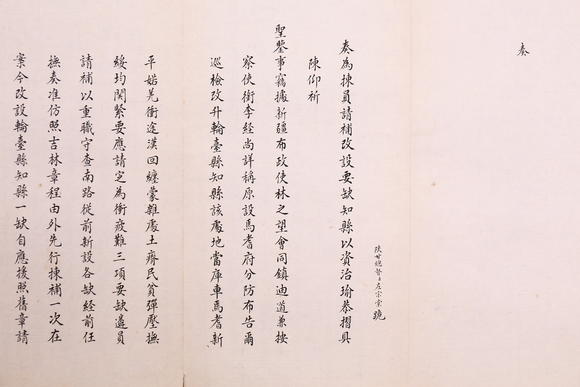 奏
陝甘總督左宗棠跪
奏為揀員請補改設要缺知縣以資治瑜恭摺具
陳仰祈
聖鑒事竊據新疆布政使林之望會同鎮迪道兼按
察使銜李經尚詳稱原設馬耆府分防布告爾
巡檢改升輪臺縣知縣該處地當庫車馬耆新
平婼羌衝途漢回纏蒙雜處土瘠民貧彈壓撫
綏均関緊要應請定為衝疲難三項要缺遴員
請補以重職守查南路從前新設各缺經前任
撫奏准仿照吉林章程由外先行揀補一次在
案今改設輪臺縣知縣一缺自應援照舊章請